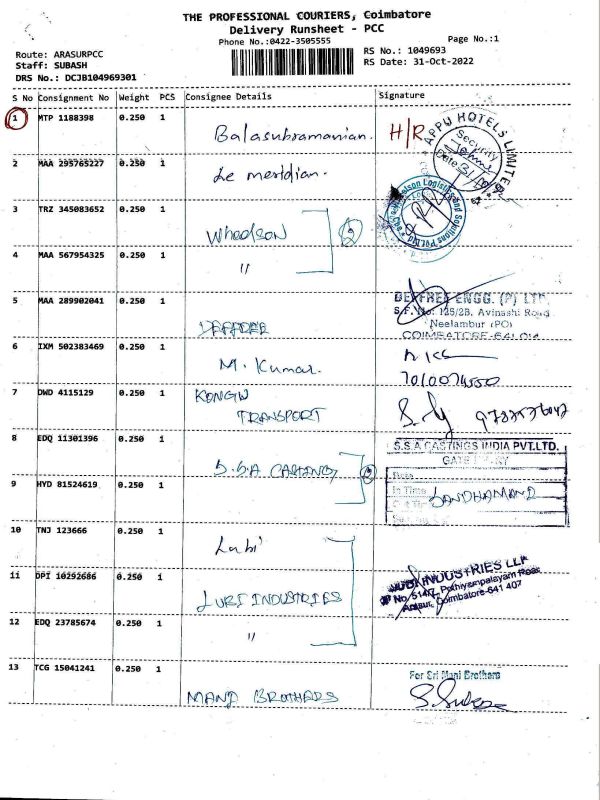 THE PROFESSIONAL COURIERS, Coimbatore
Delivery Runsheet - PCC
Phone No.:0422-3505555
Page No.:1
Route: ARASURPCC
Staff: SUBASH
DRS No.: DCJB104969301
RS No.: 1049693
RS Date: 31-Oct-2022
S No Consignment No Weight PCS Consignee Details Signature
1 MTP 1188398 0.250 1 Balasubramanian. H/R
APPU HOTELS LIMITED
Security
2 MAA 295765227 0.250 1 Le meridian.
3 TRZ 345083652 0.250 1 Wheelson 2
4 MAA 567954325 0.250 1 "
5 MAA 289902041 0.250 1
ENGG. (P) LTD
S.F. No: 125/2B, Avinashi Road
Neelambur (PO)
6 IXM 502383469 0.250 1 M. Kumar.
7 DWD 4115129 0.250 1 KONGU
TRANSPORT
8 EDQ 11301396 0.250 1 S.S.A CASTING 2
S.S.A CASTINGS INDIA PVT.LTD.
9 HYD 81524619 0.250 1
Date
In Time
10 TNJ 123666 0.250 1 Lubi
11 DPI 10292686 0.250 1 LUBI INDUSTRIES
INDUSTRIES LLP
Coimbatore-641 407
12 EDQ 23785674 0.250 1 "
13 TCG 15041241 0.250 1 MANI BROTHARS
For Sri Mani Brothers